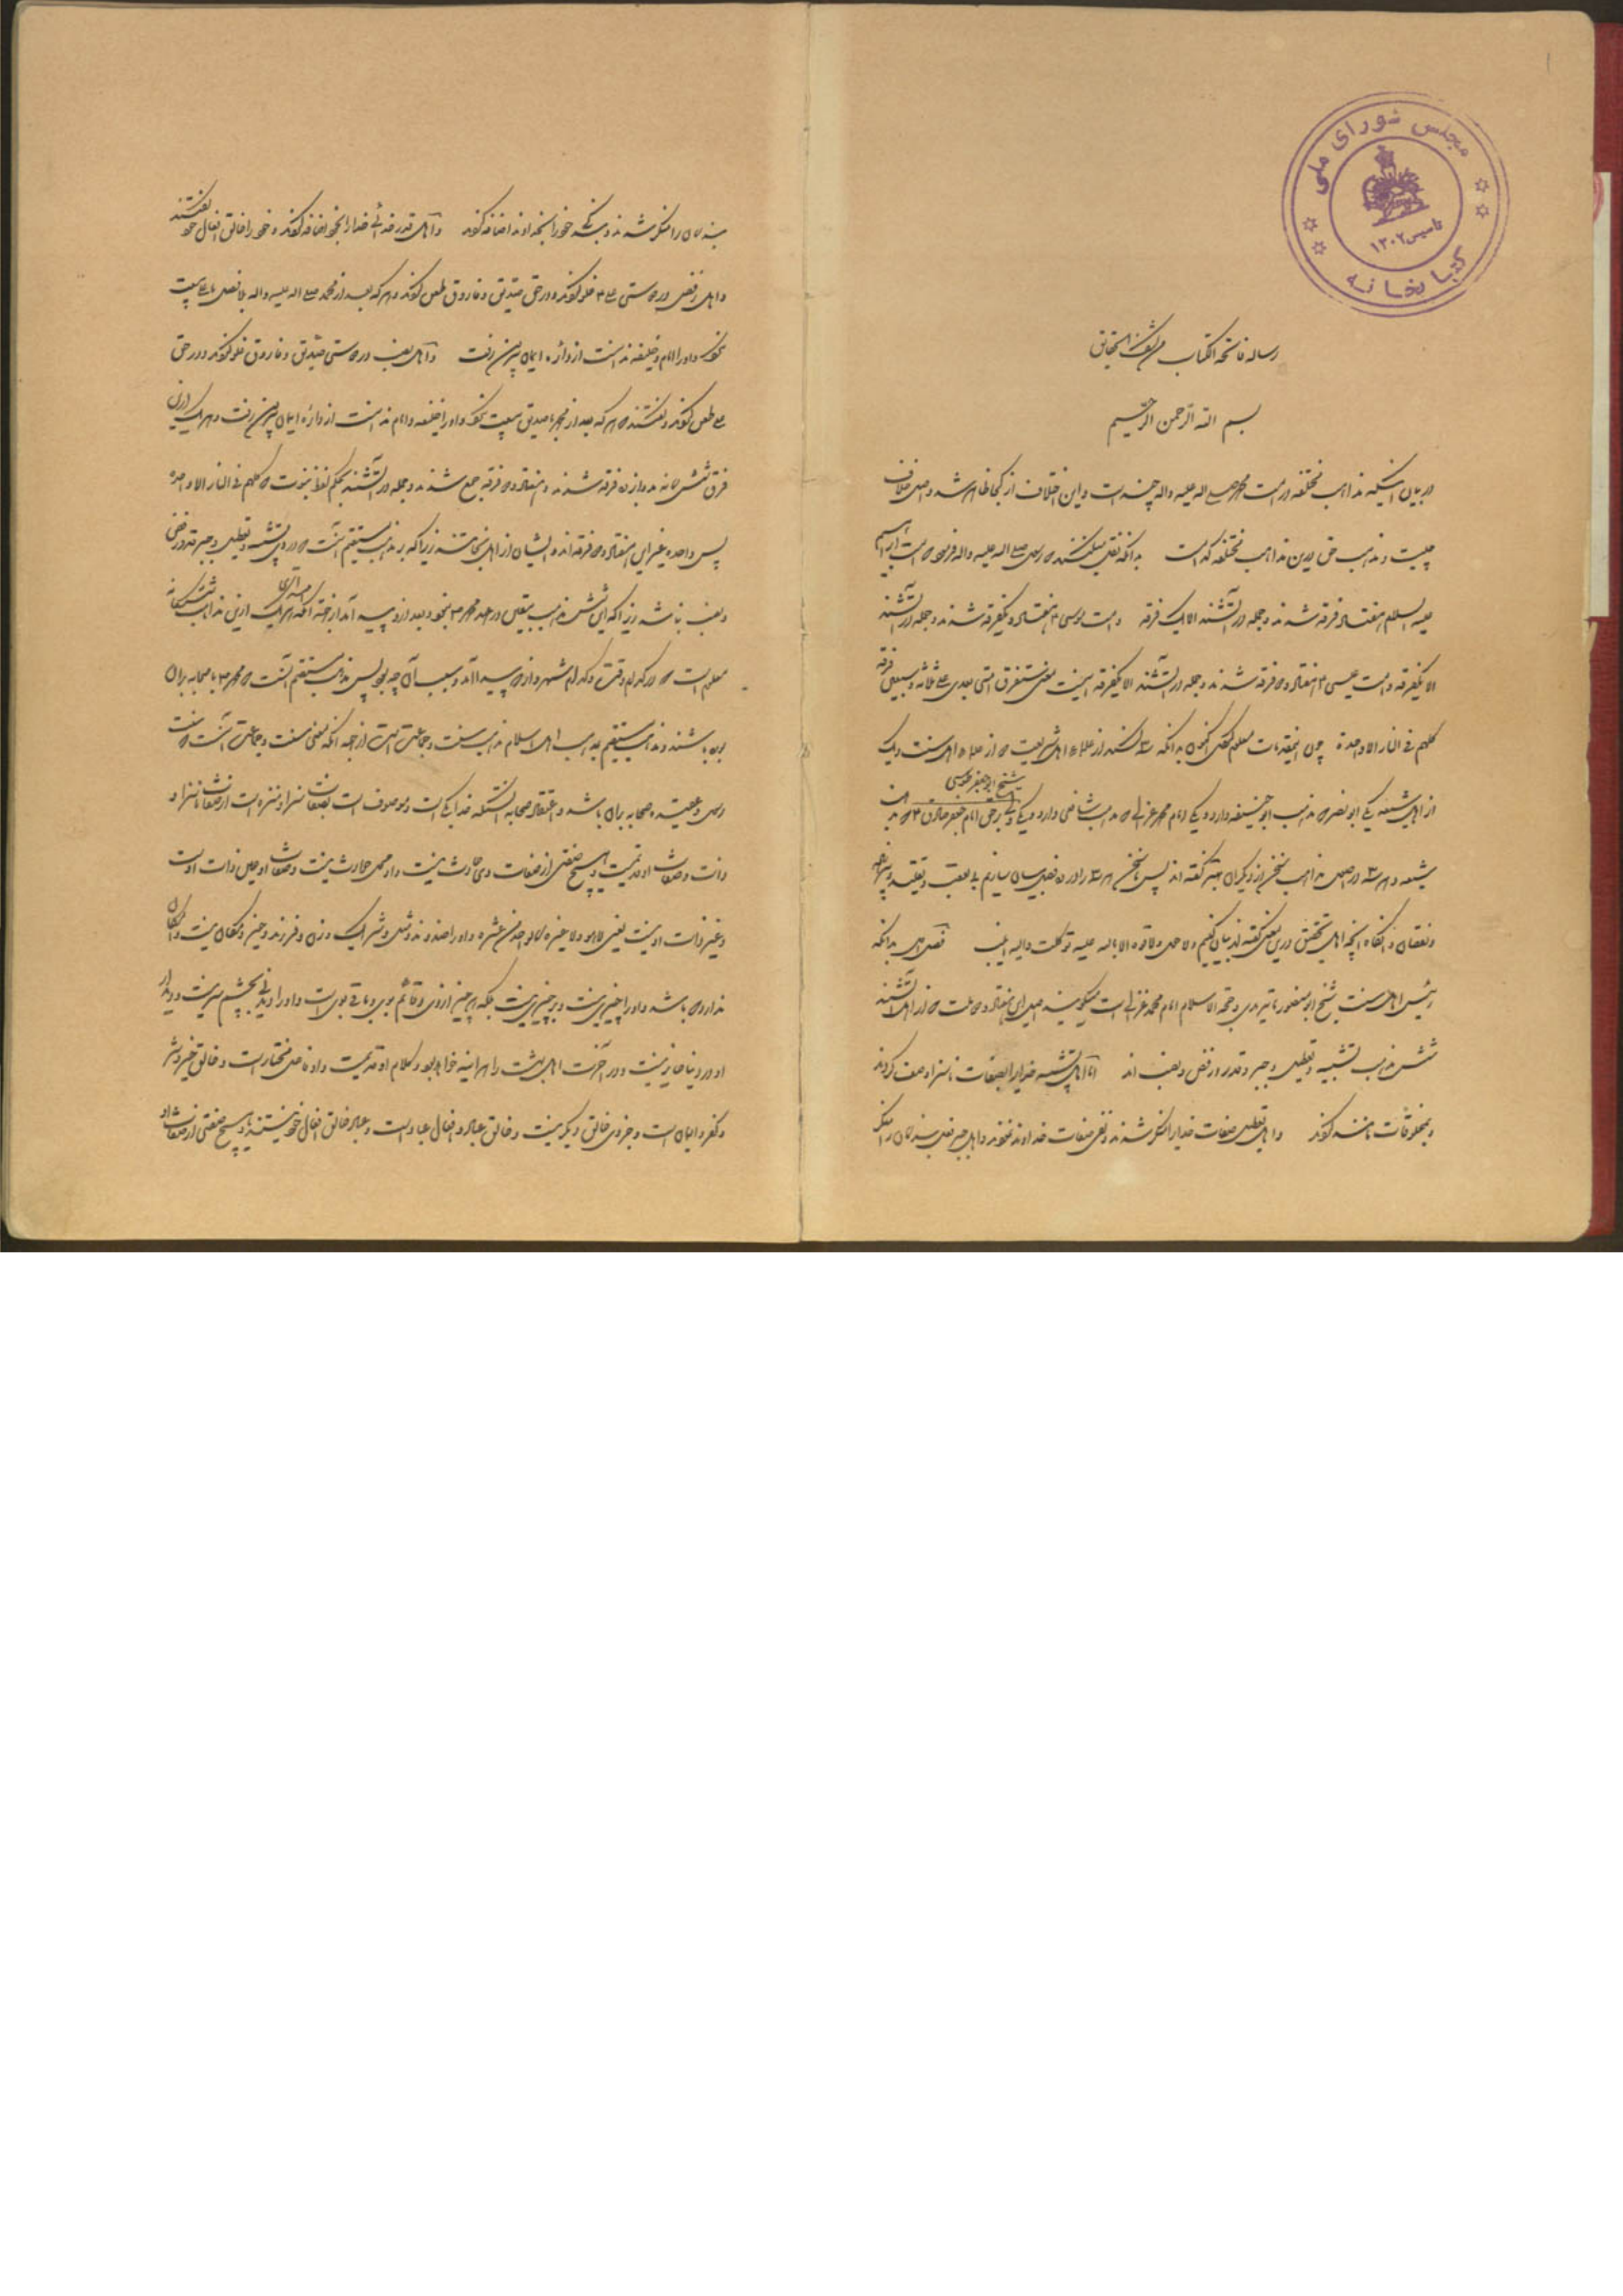 مجلس شورای ملی
تاسیس ۱۳۰۲
کتابخانه
رساله فاتحة الکتاب من کشف الحقایق
بسم الله الرحمن الرحیم
در بیان آنکه مذاهب مختلفه در امت محمد صلی اله علیه واله چند است و این اختلاف از کجا ظاهر شد و اصل خلاف
چیست و مذهب حق ازین مذاهب مختلفه کدامست بدانکه نقل میکنند که رسول صلی اله علیه واله فرمود که امت ابراهیم
علیه السلم هفتاد فرقه شدند و جمله در آتشند الا یک فرقه و امت موسی ۴ هفتاد و یکفرقه شدند و جمله در آتشند
الا یکفرقه و امت عیسی ۴ هفتاد و دو فرقه شدند و جمله در آتشند الا یکفرقه ستفرق امتی بعدی علی ثلاثه و سبعین فرقه
کلهم فی النار الا واحدة چون اینمقدمات معلوم کردی اکنون بدانکه سه کس اند از علماء اهل شریعت دو از علماء اهل سنت و یک
از اهل شیعه یکی ابو نصر که مذهب ابو حنیفه دارد و یکی امام محمد غزالی که مذهب شافعی دارد و یکی شیخ ابو جعفر طوسی امام جعفر صادق
شیعه و هر سه در اصل مذاهب سخن از دیگران بهتر گفته اند پس ما سخن هر سه را درین فصل بیان سازیم بی تعصب و تقلید و بی زیاده
و نقصان و آنگاه آنچه اهل تحقیق درین معنی گفته اند بیان کنیم ولا حول ولا قوة الا بالله علیه توکلت والیه انیب فصل بدانکه
رئیس اهل سنت شیخ ابو منصور ماتریدی و حجة الاسلام امام محمد غزالی است میگویند اصل این هفتاد و دو ملت که از اهل آتشند
شش مذهب تشبیه و تعطیل و جبر و قدر و رفض و نصب اند اما اهل تشبیه خدایرا بصفات ناسزا وصف کردند
و بمخلوقات مانند کردند و اهل تعطیل صفات خدایرا منکر شدند و نفی صفات خداوند نمودند و اهل جبر فعل بندگان را منکر
بندگان را منکر شدند و بندگی خود را بخداوند اضافه کردند و اهل قدر خدائی خدایرا بخود اضافه کردند و خود را خالق افعال خود گفتند
و اهل رفض در دوستی علی ۴ غلو کردند و در حق صدیق و فاروق طعن کردند و هر که بعد از محمد صلی اله علیه واله بلا فصل با علی بیعت
نکرد و او را امام و خلیفه ندانست از دائره ایمان بیرون رفت و اهل نصب در دوستی صدیق و فاروق غلو کردند و در حق
علی طعن کردند و گفتند که هر که بعد از محمد با صدیق بیعت نکرد و او را خلیفه و امام ندانست از دائره ایمان بیرون رفت و هر یک ازین
فرق شش گانه دوازده فرقه شدند و هفتاد و دو فرقه جمع شدند و جمله در آتشند بحکم لفظ نبوت که کلهم فی النار الا واحدة
پس واحده غیر این هفتاد و دو فرقه اند و ایشان از اهل نجاتند زیرا که مذهب مستقیم آنست که در وی تشبیه و تعطیل و جبر و قدر و رفض
و نصب نباشد زیرا که این شش مذهب در عهد محمد ۴ نبود و بعد از وی پیدا آمد از جهة آنکه هر یک ازین مذاهب شش گانه
معلوم است که در کدام وقت و کدام شهر و از که پیدا آمد و سبب آن چه بود پس مذهب مستقیم آنست که محمد ۴ با صحابه بر آن
بوده باشند و مذهب مستقیم مذهب اهل اسلام مذهب سنت و جماعت است از جهة آنکه معنی سنت و جماعت آنست که سنت
رسول و عقیده صحابه بر آن باشد و اعتقاد صحابه آنستکه خدا یکی است و موصوف است بصفات سزا و منزه است از صفات ناسزا و
ذات و صفات او قدیمست و هیچ صفتی از صفات وی حادث نیست و او محل حوادث نیست و صفات او عین ذات او است
و غیر ذات او نیست یعنی لا هو ولا غیره کالواحد من عشره و او را ضد و ند و مثل و شریک و زن و فرزند و حیز و مکان نیست و امکان
ندارد که باشد و او را چیزی نیست و بر چیزی نیست بلکه هر چیز از وی و قائم بوی و باقی بوی است و او را دیدنی بچشم سر نیست و دیدار
او در دنیا جایز نیست و در آخرت اهل بهشت را هر آینه خواهد بود و کلام او قدیمست و او فاعل مختار است و خالق خیر و شر
و کفر و ایمان است و جز وی خالق دیگر نیست و خالق عباد و افعال عباد است و عباد خالق افعال خود نیستند و هیچ صفتی از صفات او